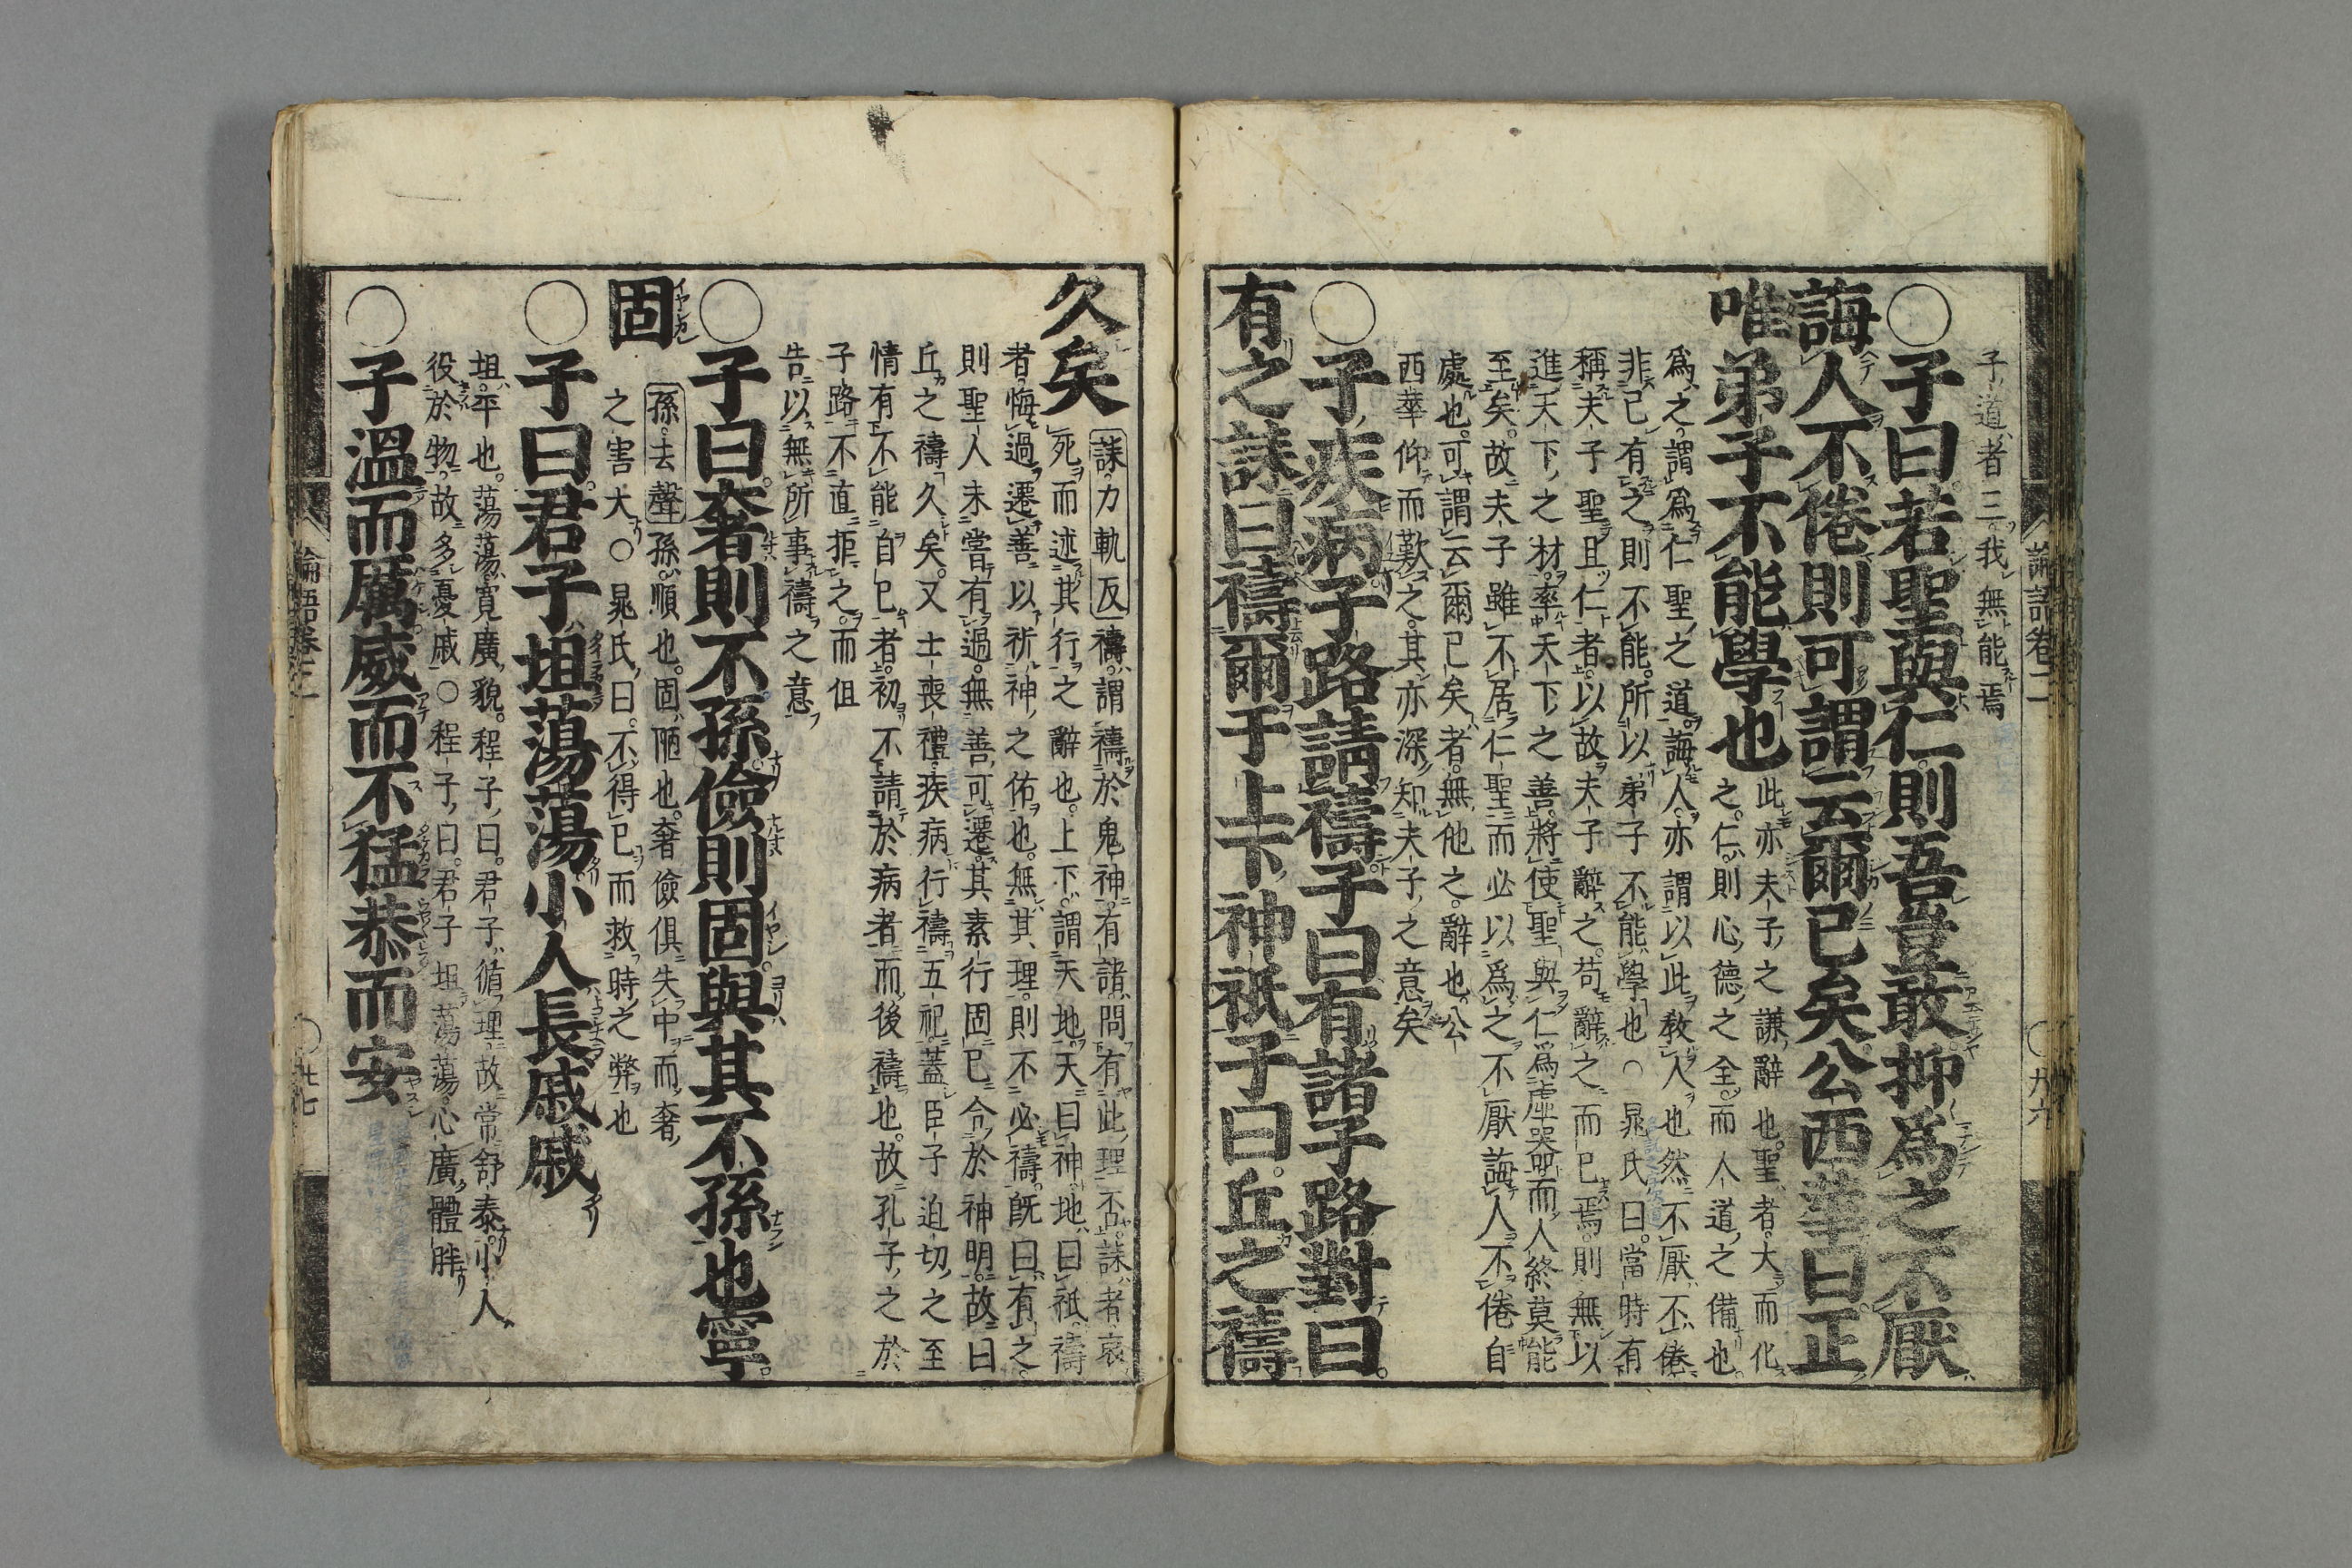 子道者三我無能焉
○子曰若聖與仁則吾豈敢抑爲之不厭
誨人不倦則可謂云爾已矣公西華曰正
唯弟子不能學也
此亦夫子之謙辭也聖者大而化
之仁則心德之全而人道之備也
爲之謂爲仁聖之道誨人亦謂以此教人也然不厭不倦
非已有之則不能所以弟子不能學也○晁氏曰當時有
稱夫子聖且仁者以故夫子辭之苟辭之而已焉則無以
進天下之材率天下之善將使聖與仁爲虛器而人終莫能
至矣故夫子雖不居仁聖而必以爲之不厭誨人不倦自
處也可謂云爾已矣者無他之辭也公
西華仰而歎之其亦深知夫子之意矣
○子疾病子路請禱子曰有諸子路對曰
有之誄曰禱爾于上下神祇子曰丘之禱
論語卷二
○九六
久矣
誄力軌反禱謂禱於鬼神有諸問有此理否誄者哀
死而述其行之辭也上下謂天地天曰神地曰祇禱
者悔過遷善以祈神之佑也無其理則不必禱既曰有之
則聖人未嘗有過無善可遷其素行固已合於神明故曰
丘之禱久矣又士喪禮疾病行禱五祀蓋臣子迫切之至
情有不能自已者初不請於病者而後禱也故孔子之於
子路不直拒之而但
告以無所事禱之意
○子曰奢則不孫儉則固與其不孫也寧
固
孫去聲孫順也固陋也奢儉俱失中而奢
之害大○晁氏曰不得已而救時之弊也
○子曰君子坦蕩蕩小人長戚戚
坦平也蕩蕩寬廣貌程子曰君子循理故常舒泰小人
役於物故多憂戚○程子曰君子坦蕩蕩心廣體胖
○子溫而厲威而不猛恭而安
論語卷二
○九七